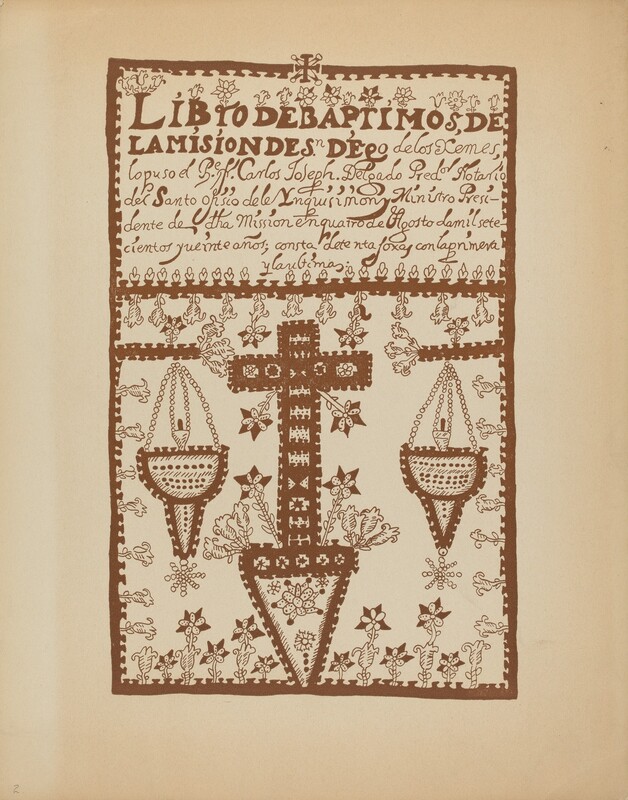 LIBro DE BAPTIMOS, DE
LA MISION DE Sn DiEgo de los Xemes,
lo puso el Carlos Joseph. Delgado Pred.or Notario
del Santo Ofisio dele Ynquisision, y Ministro Presi-
dente de Ydha Mission en quatro de Agosto damil sete-
cientos y ueinte años, consta de tenta foxas con la primera
y la ultima:
2